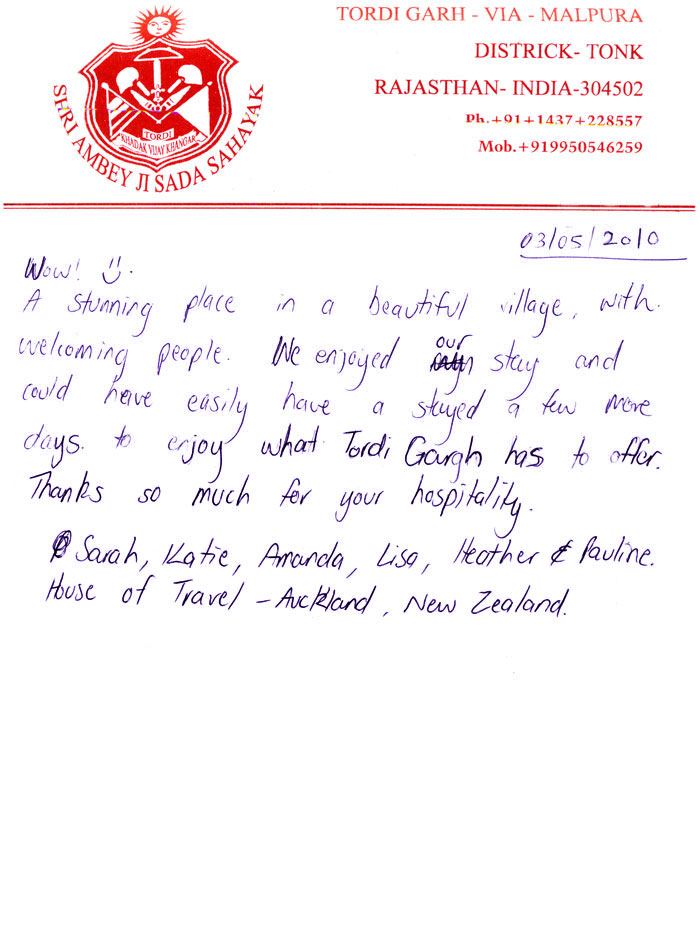 TORDI GARH - VIA - MALPURA
DISTRICK- TONK
RAJASTHAN- INDIA-304502
Ph.+91+1437+228557
Mob.+919950546259
SHRI AMBEY JI SADA SAHAYAK
TORDI
KHADAK VIJAY KHANGAR
03/05/2010
Wow! :)
A stunning place in a beautiful village, with
welcoming people. We enjoyed our stay and
could have easily have a stayed a few more
days. to enjoy what Tordi Gargh has to offer.
Thanks so much for your hospitality.
Sarah, Katie, Amanda, Lisa, Heather & Pauline.
House of Travel - Auckland, New Zealand.